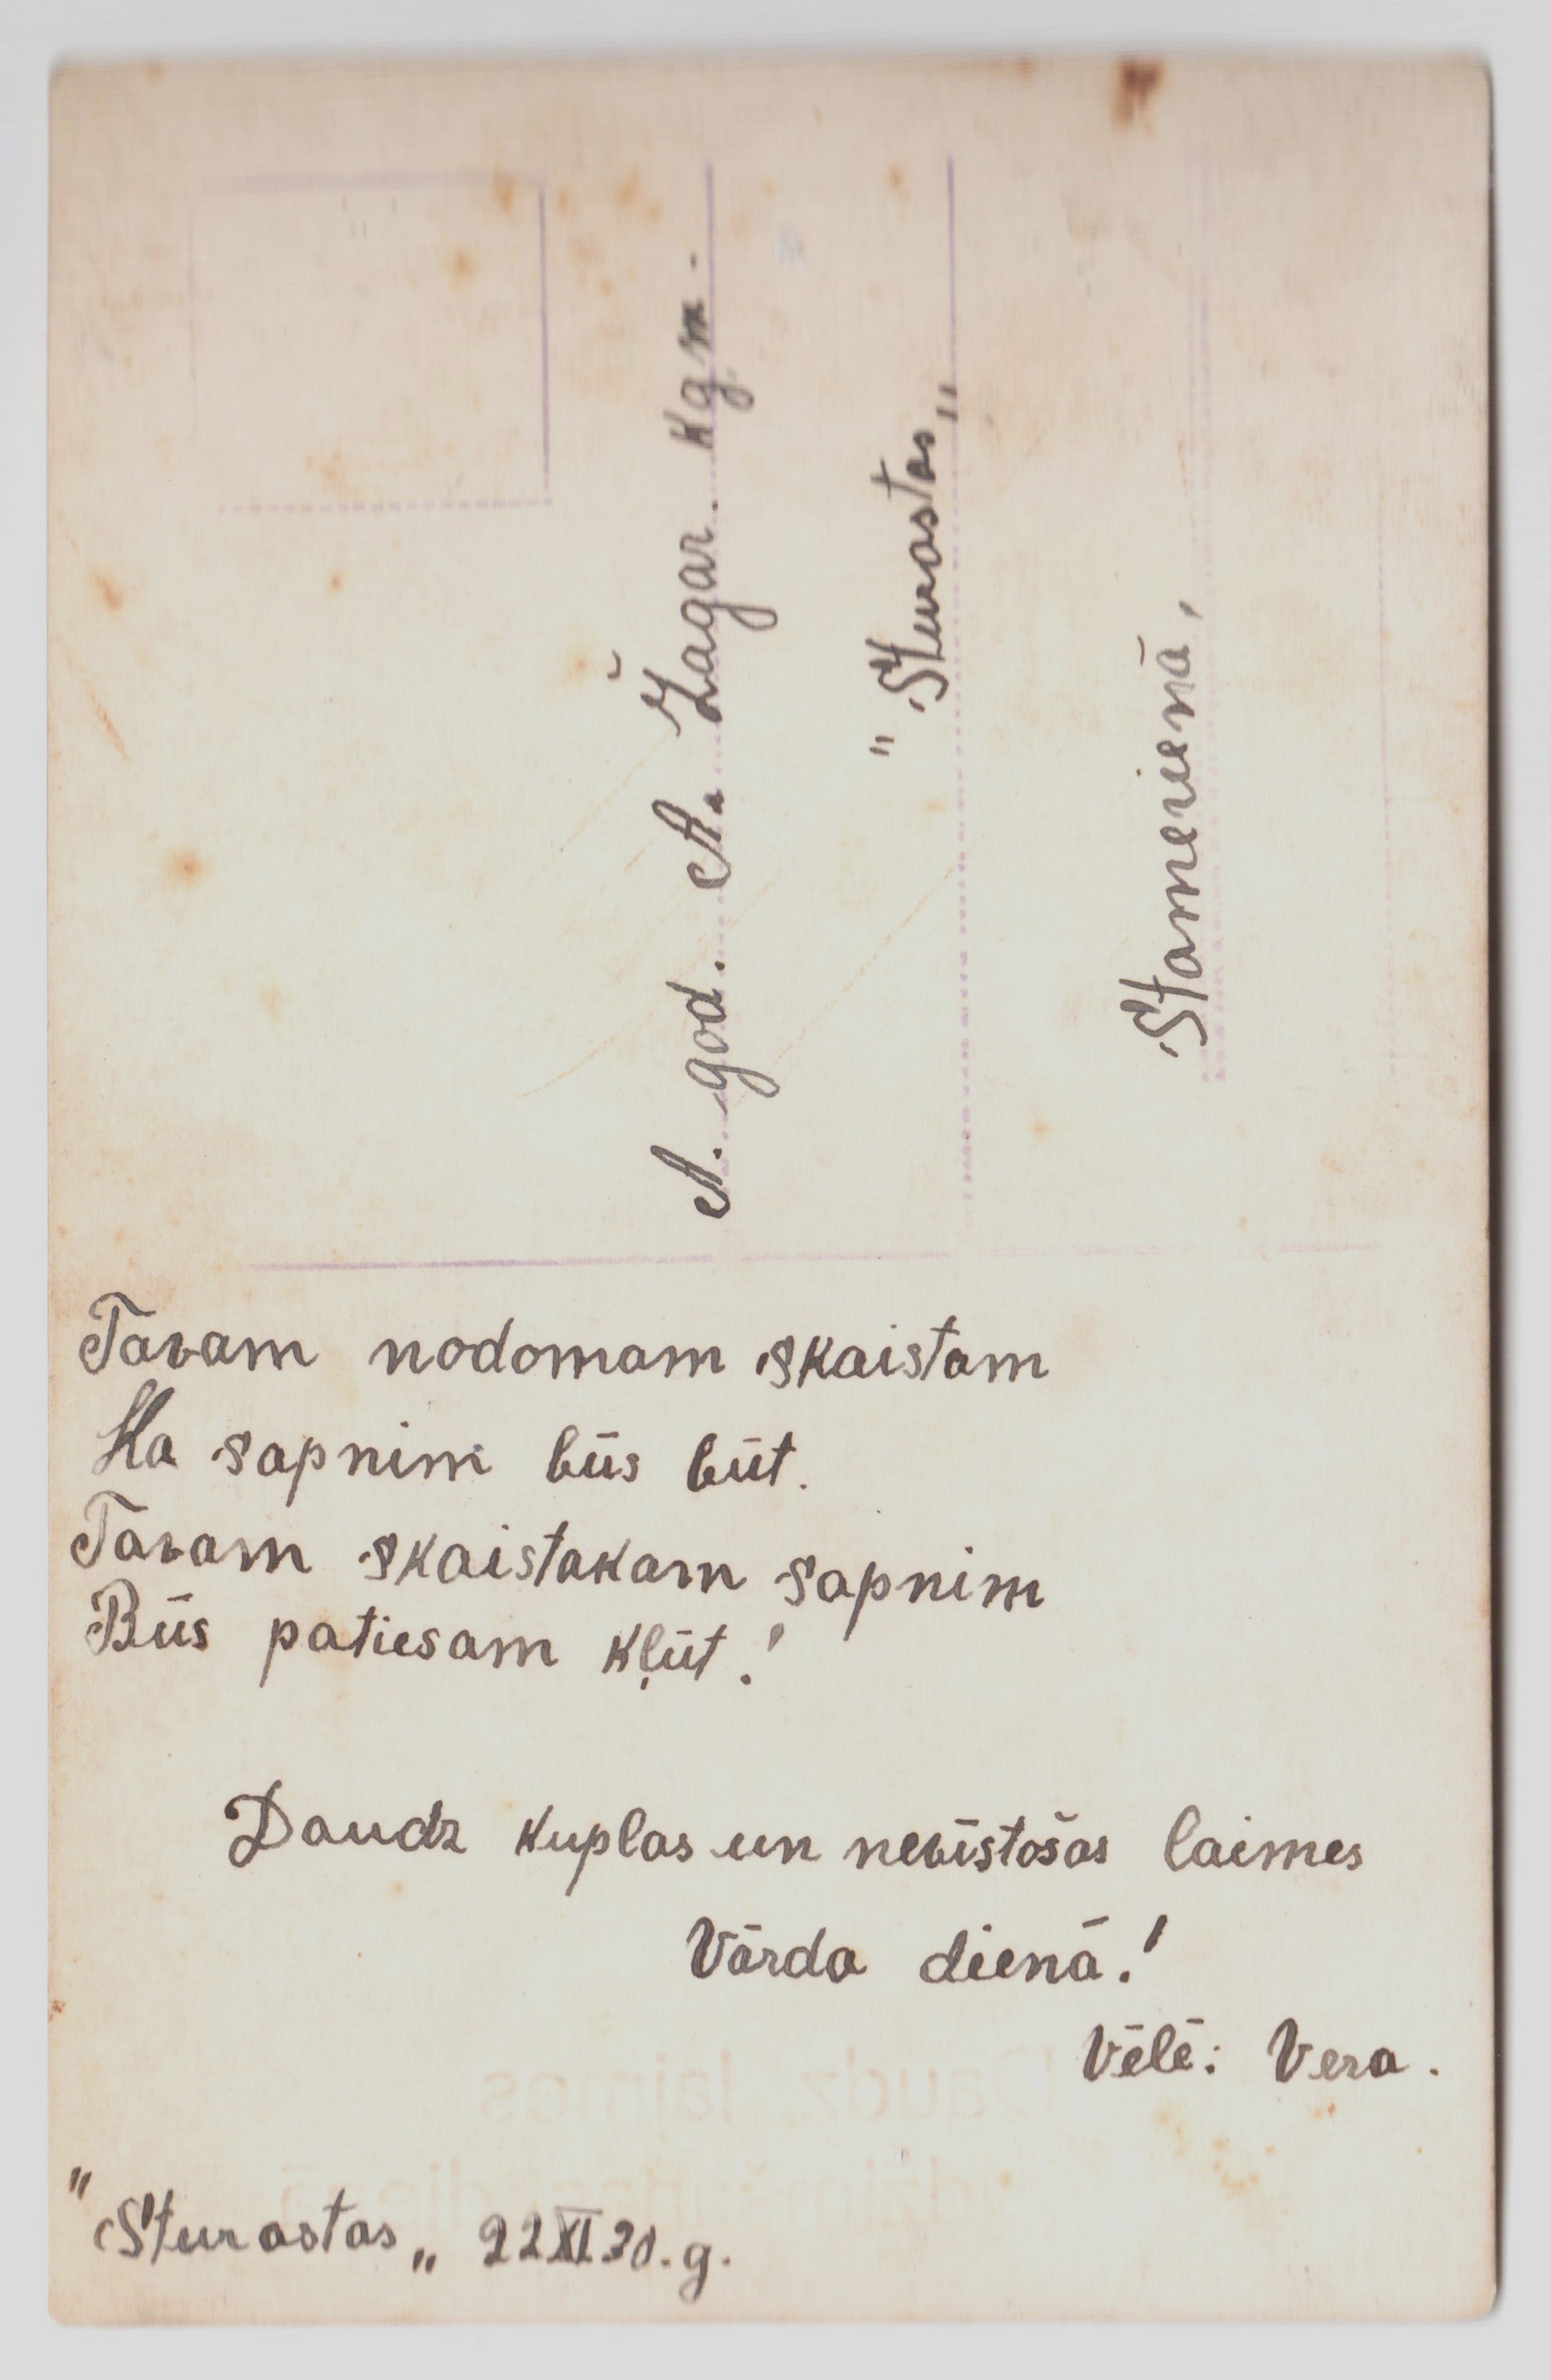 A. god. A. Žagar. kgm.
"Sturastas"
Stameriena,
Tavam nodomam skaistam
Ka sapnim būs būt.
Tavam skaistakam sapnim
Būs patiesam kļūt!
Daudz kuplas un nevīstošas laimes
Vārda dienā!
Vēlē: Vera.
"Sturastas„ 22 XI 30. g.